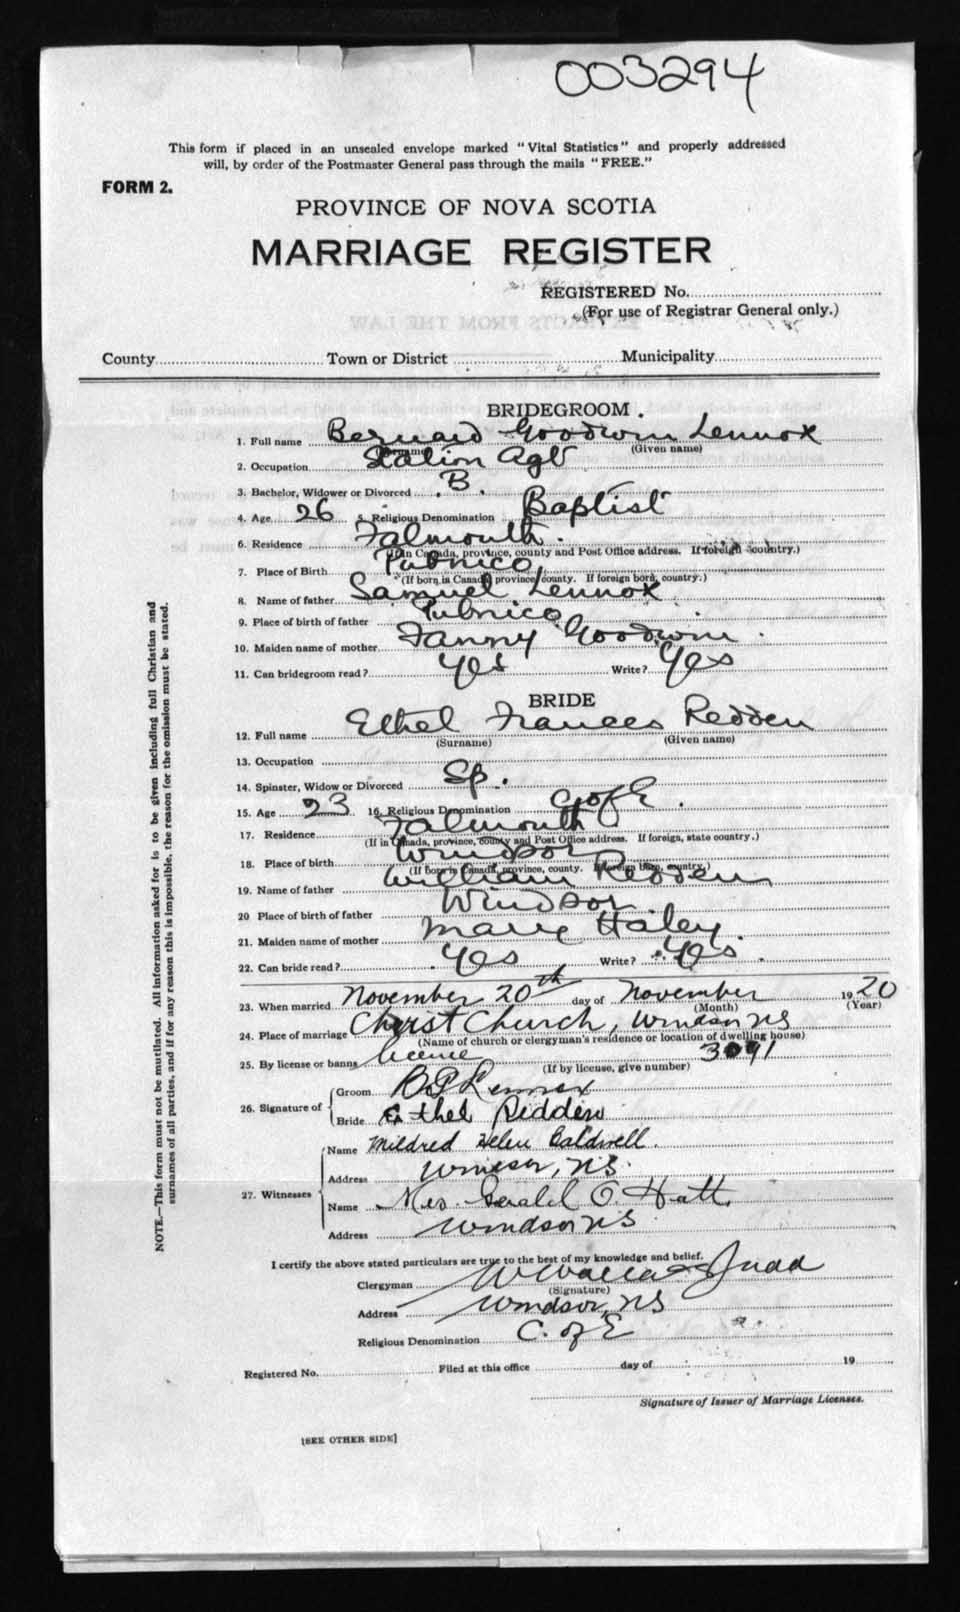 003294
This form if placed in an unsealed envelope marked "Vital Statistics" and properly addressed
will, by order of the Postmaster General pass through the mails "FREE."
FORM 2.
PROVINCE OF NOVA SCOTIA
MARRIAGE REGISTER
REGISTERED No.
(For use of Registrar General only.)
County Town or District Municipality
BRIDEGROOM.
1. Full name Bernard Goodwin Lennox
(Surname) (Given name)
2. Occupation Station Agt
3. Bachelor, Widower or Divorced B.
4. Age 26 5. Religious Denomination Baptist
6. Residence Falmouth.
(If in Canada, province, county and Post Office address. If foreign country.)
7. Place of Birth Pubnico
(If born in Canada, province, county. If foreign born, country.)
8. Name of father Samuel Lennox
9. Place of birth of father Pubnico
10. Maiden name of mother Fanny Goodwin.
11. Can bridegroom read? Yes Write? Yes
BRIDE
12. Full name Ethel Frances Redden
(Surname) (Given name)
13. Occupation
14. Spinster, Widow or Divorced Sp.
15. Age 23 16. Religious Denomination C of E.
17. Residence Falmouth
(If in Canada, province, county and Post Office address. If foreign, state country.)
18. Place of birth Windsor
(If born in Canada, province, county. If foreign born, country.)
19. Name of father William Redden
20 Place of birth of father Windsor.
21. Maiden name of mother Marie Haley.
22. Can bride read? Yes Write? Yes.
23. When married November 20th day of November 1920
(Month) (Year)
24. Place of marriage Christ Church, Windsor NS
(Name of church or clergyman's residence or location of dwelling house)
25. By license or banns licence 3091
(If by license, give number)
26. Signature of
Groom B Lennox
Bride Ethel Redden
27. Witnesses
Name Mildred Helen Caldwell.
Address Windsor, NS.
Name Mrs. Gerald O. Hatt
Address Windsor NS
I certify the above stated particulars are true to the best of my knowledge and belief.
Clergyman Judd
(Signature)
Address Windsor, NS
Religious Denomination C. of E
Registered No. Filed at this office day of 19
Signature of Issuer of Marriage Licenses.
[SEE OTHER SIDE]
NOTE.—This form must not be mutilated. All information asked for is to be given including full Christian and
surnames of all parties, and if for any reason this is impossible, the reason for the omission must be stated.